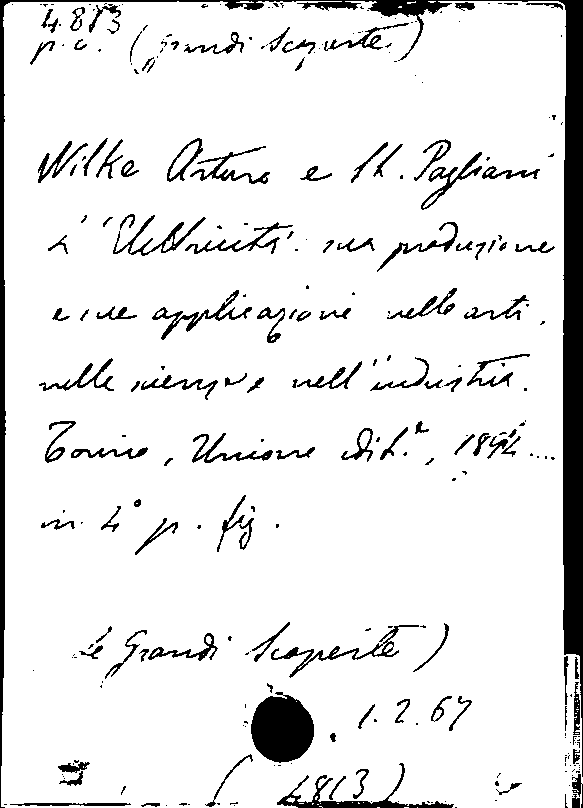 4813
p.a. (Grandi Scoperte)
Wilke Arturo e St. Pagliani
L'Elettricità. sua produzione
e sue applicazioni nelle arti,
nelle scienze e nell'industria.
Torino, Unione edit.ª, 1894....
in 4° p. fig.
Le Grandi Scoperte)
1.2.67
(4813)